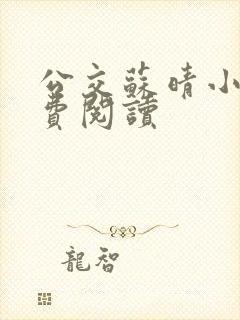 公交蘇晴小
費閱讀
龍智